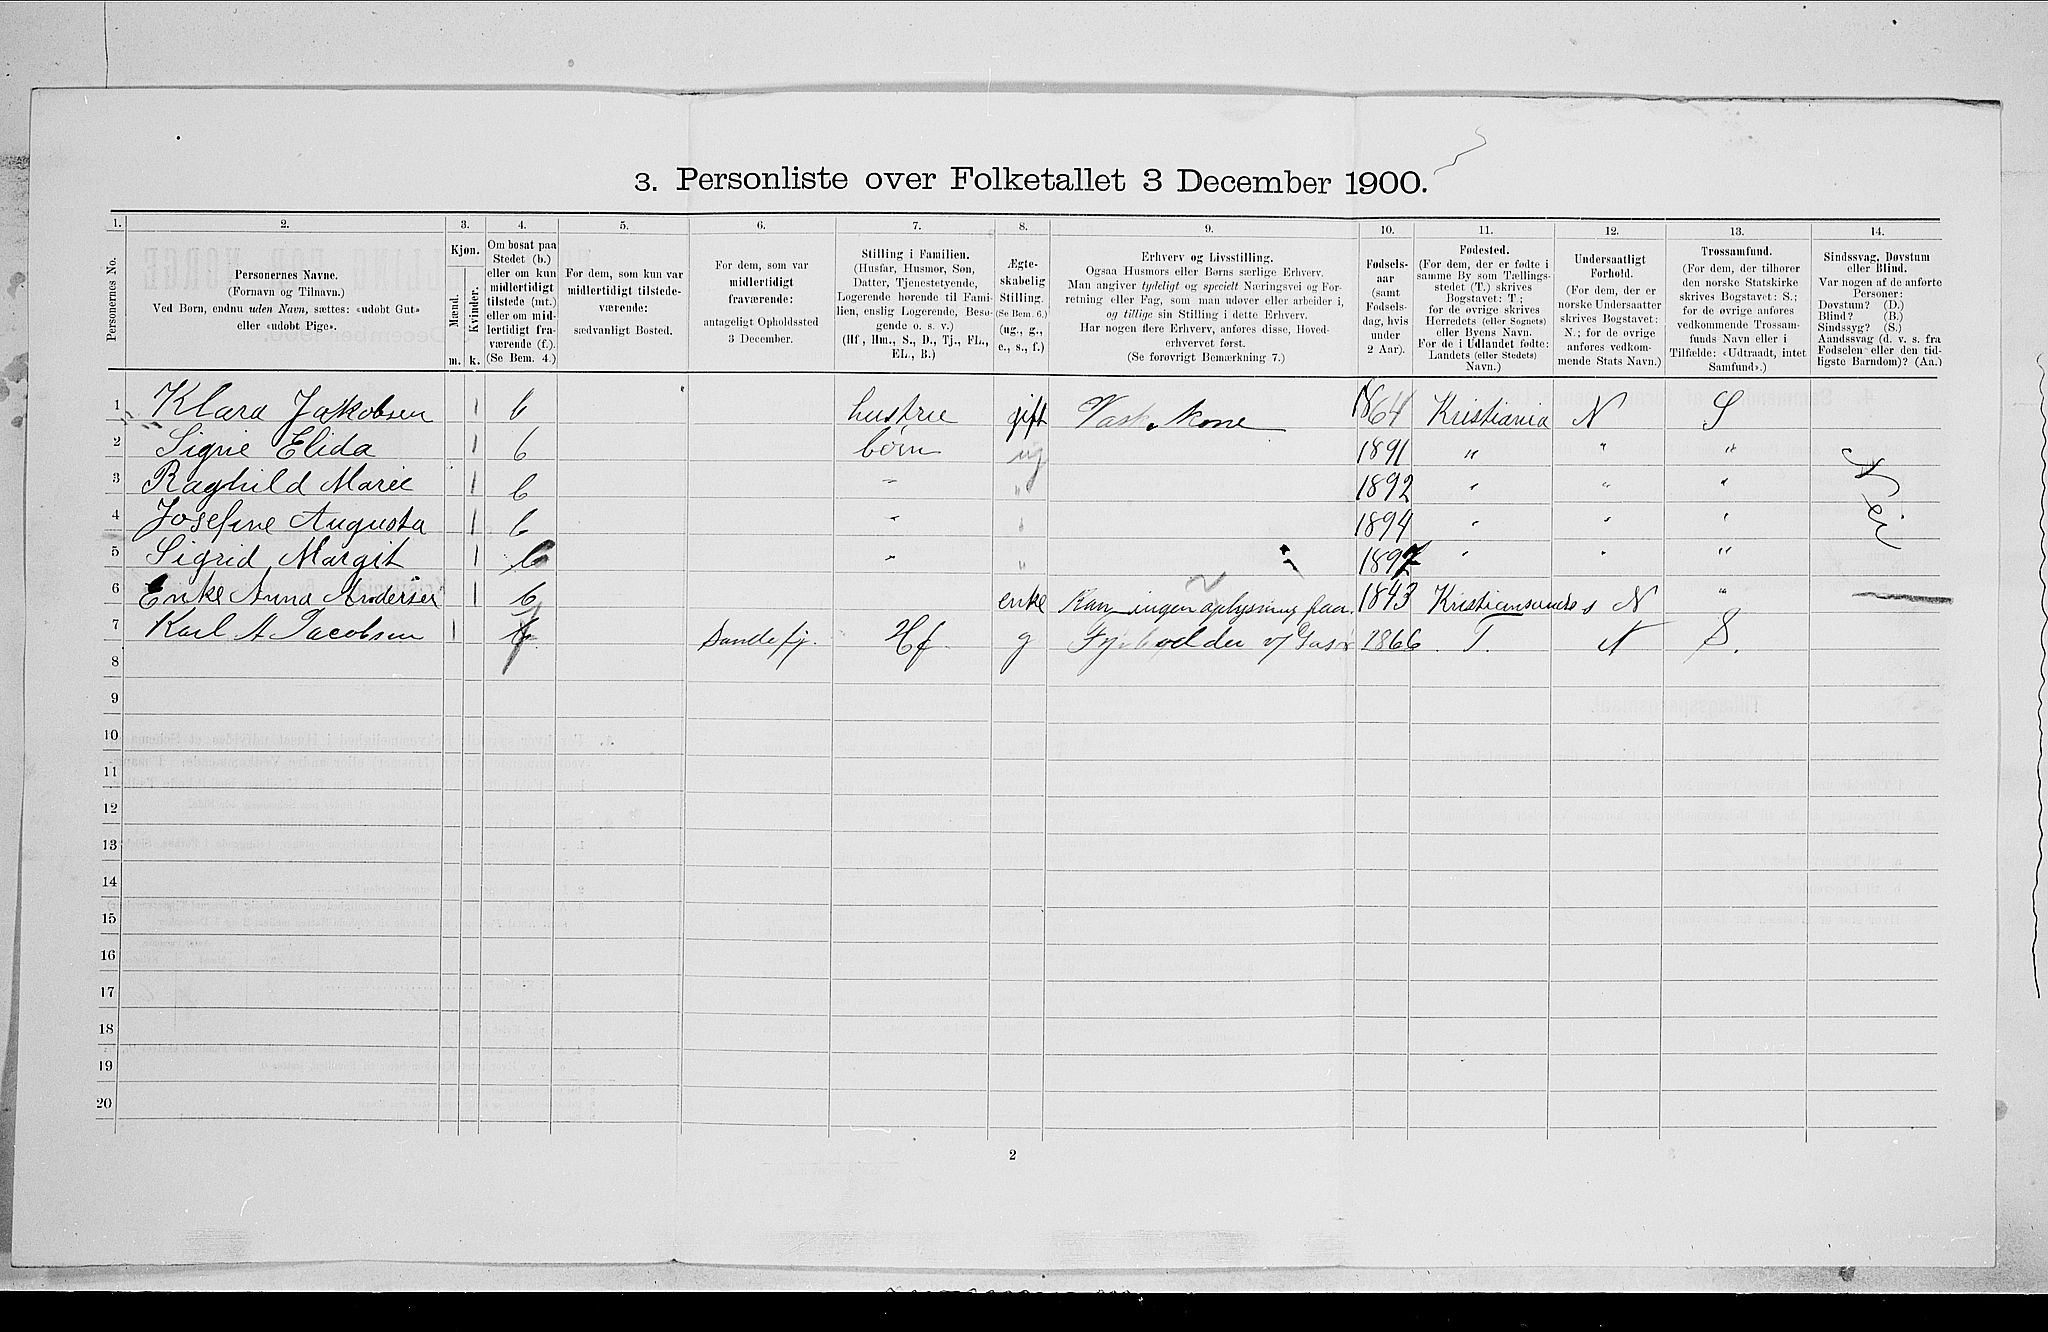 3. Personliste over Folketallet 3 December 1900.
1. 2. 3. 4. 5. 6. 7. 8. 9. 10. 11. 12. 13. 14.
Personernes No.
Personernes Navne.
(Fornavn og Tilnavn.)
Ved Børn, endnu uden Navn, sættes: «udøbt Gut»
eller «udøbt Pige».
Kjøn.
Mænd.
Kvinder.
m. k.
Om bosat paa
Stedet (b.)
eller om kun
midlertidigt
tilstede (mt.)
eller om mid-
lertidigt fra-
værende (f.).
(Se Bem. 4.)
For dem, som kun var
midlertidigt tilstede-
værende:
sædvanligt Bosted.
For dem, som var
midlertidigt
fraværende:
antageligt Opholdssted
3 December.
Stilling i Familien.
(Husfar, Husmor, Søn,
Datter, Tjenestetyende,
Logerende hørende til Fami-
lien, enslig Logerende, Besø-
gende o. s. v.)
(Hf, Hm., S., D., Tj., FL.,
EL., B.)
Ægte-
skabelig
Stilling.
(Se Bem. 6.)
(ug., g.,
e., s., f.)
Erhverv og Livsstilling.
Ogsaa Husmors eller Børns særlige Erhverv.
Man angiver tydeligt og specielt Næringsvei og For-
retning eller Fag, som man udøver eller arbeider i,
og tillige sin Stilling i dette Erhverv.
Har nogen flere Erhverv, anføres disse, Hoved-
erhvervet først.
(Se forøvrigt Bemærkning 7.)
Fødsels-
aar
(samt
Fødsels-
dag, hvis
under
2 Aar).
Fødested.
(For dem, der er fødte i
samme By som Tællings-
stedet (T.) skrives
Bogstavet: T;
for de øvrige skrives
Herredets (eller Sognets)
eller Byens Navn.
For de i Udlandet fødte:
Landets (eller Stedets)
Navn.)
Undersaatligt
Forhold.
(For dem, der er
norske Undersaatter
skrives Bogstavet:
N.; for de øvrige
anføres vedkom-
mende Stats Navn.)
Trossamfund.
(For dem, der tilhører
den norske Statskirke
skrives Bogstavet: S.;
for de øvrige anføres
vedkommende Trossam-
funds Navn eller i
Tilfælde: «Udtraadt, intet
Samfund».)
Sindssvag, Døvstum
eller Blind.
Var nogen af de anførte
Personer:
Døvstum? (D.)
Blind? (B.)
Sindssyg? (S.)
Aandssvag (d. v. s. fra
Fødselen eller den tid-
ligste Barndom)? (Aa.)
1 Klara Jakobsen 1 b hustrue gift Vaskekone 1864 Kristiania N S
2 Signe Elida 1 b børn ug 1891 " " "
3 Raghild Marie 1 b " " 1892 " " " Nei
4 Josefine Augusta 1 b " " 1894 " " "
5 Sigrid Margit 1 b " " 1897 " " "
6 Enke Anna Andersen 1 b enke Kan ingen oplysning faaes 1843 Kristiansund N "
7 Karl A Jacobsen 1 f Sandefj. Hf. g Fyrbøder v/ Gasv 1866 T. N S.
8
9
10
11
12
13
14
15
16
17
18
19
20
2